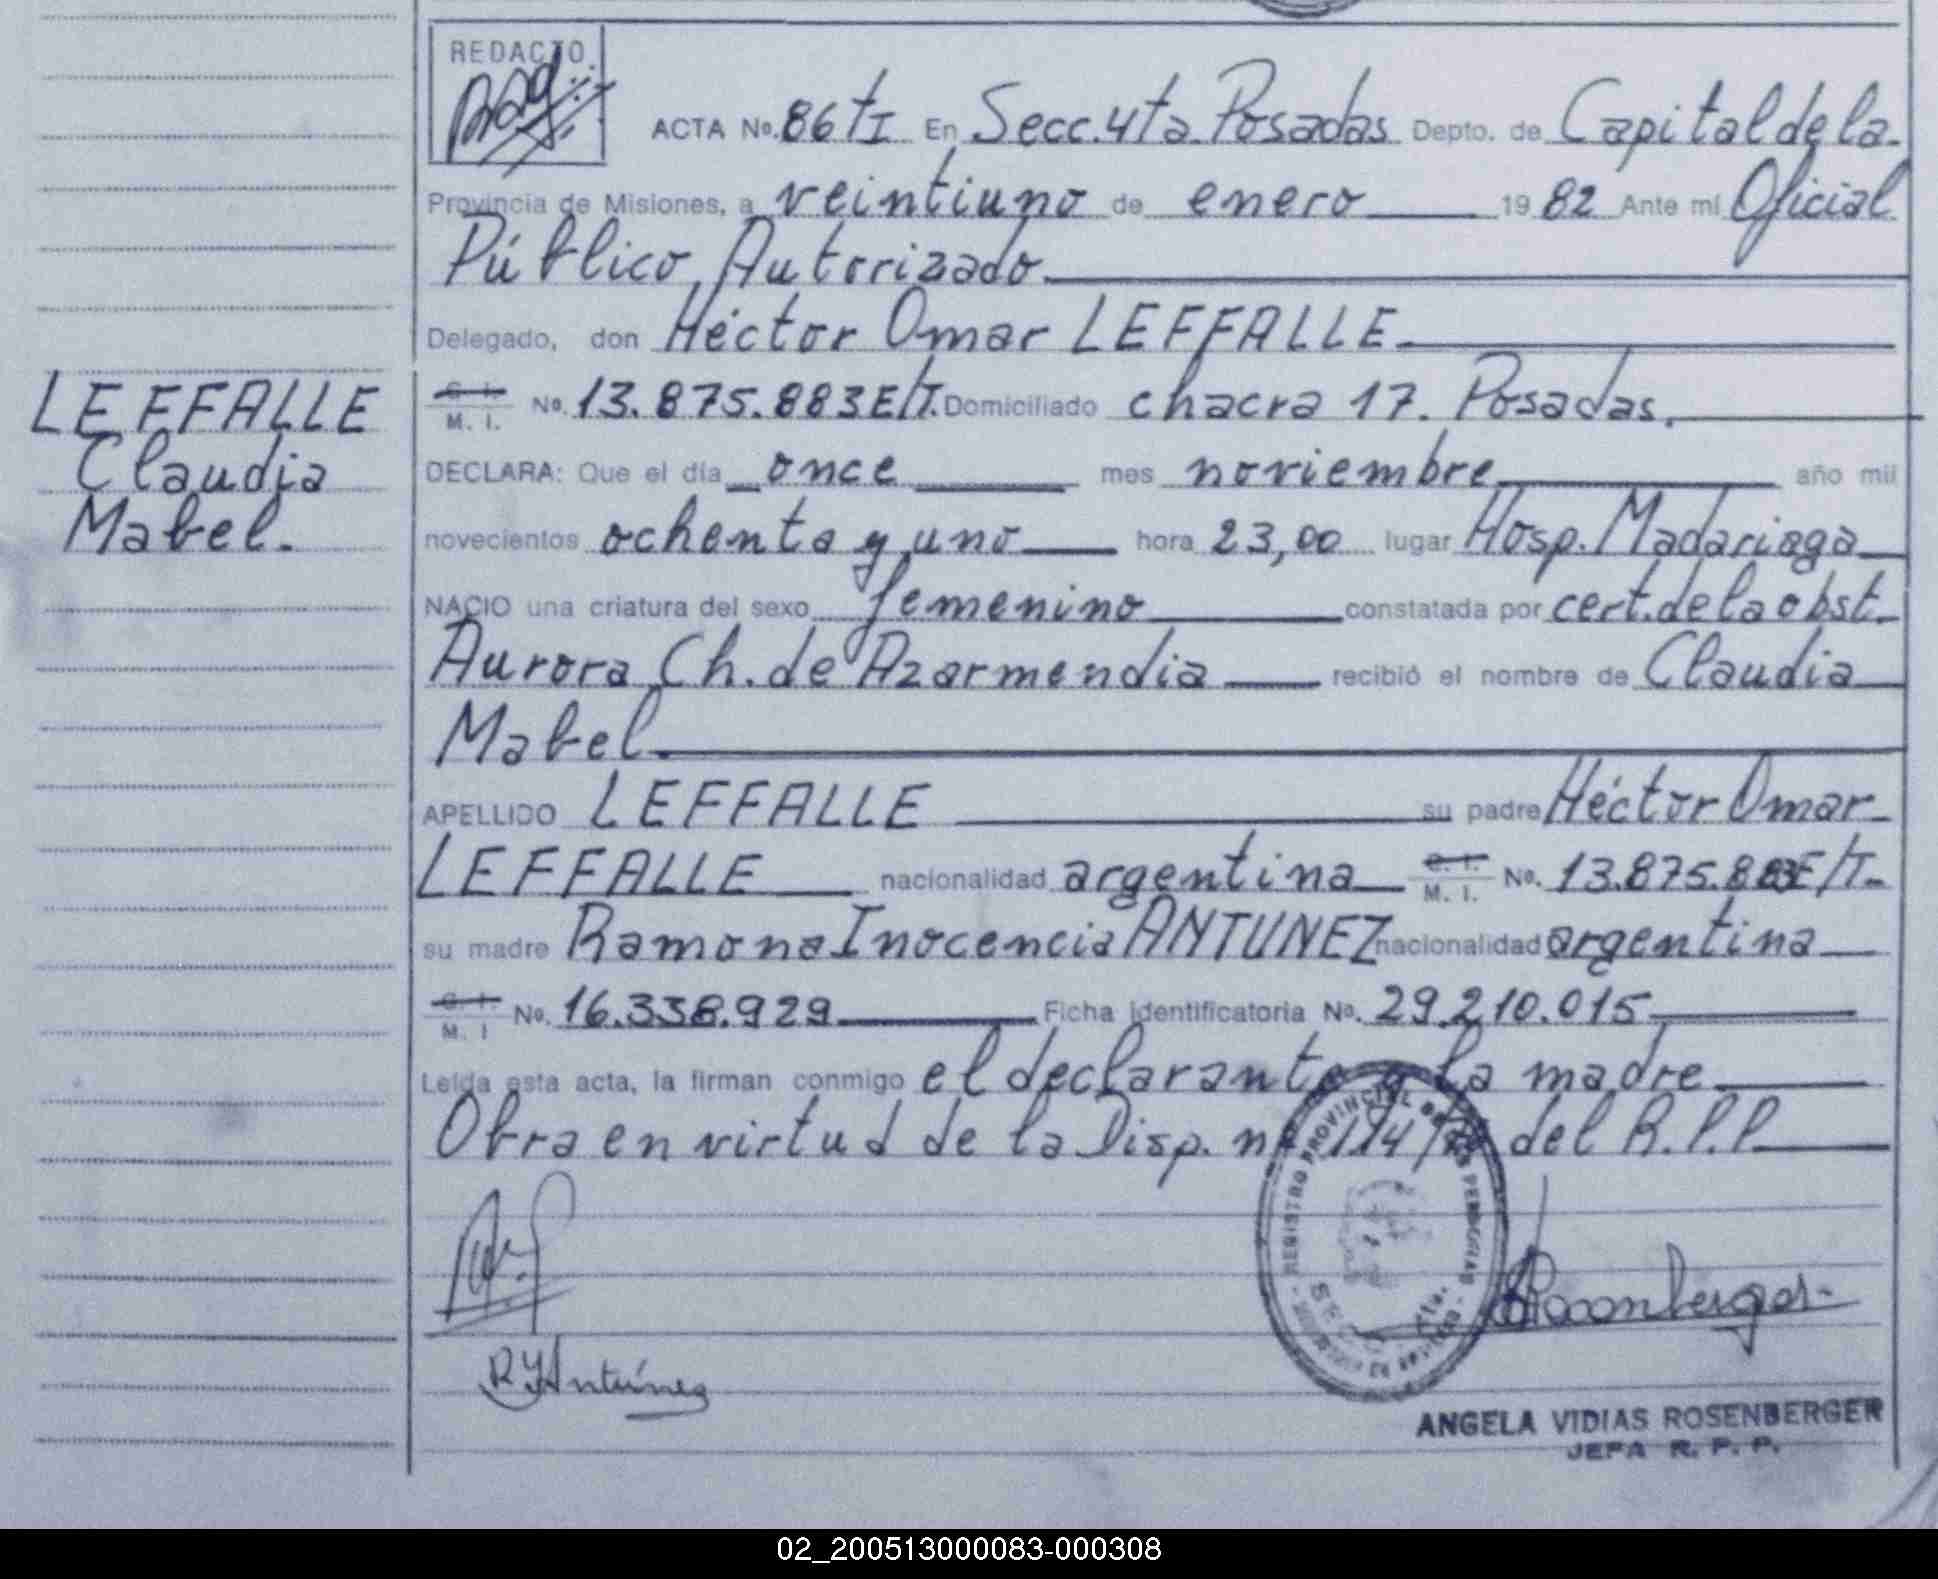 REDACTO
ACTA No. 86 tI En Secc. 4ta Posadas Depto. de Capital de la
Provincia de Misiones, a veintiuno de enero 1982 Ante mi Oficial
Público Autorizado
Delegado, don Héctor Omar LEFFALLE
LEFFALLE
Claudia
Mabel.
C. I. M. I. No. 13.875.883 E/T. Domiciliado chacra 17. Posadas.
DECLARA: Que el día once mes noviembre año mil
novecientos ochenta y uno hora 23,00 lugar Hosp. Madariaga
NACIO una criatura del sexo femenino constatada por cert. de la obst.
Aurora Ch. de Azarmendia recibió el nombre de Claudia
Mabel.
APELLIDO LEFFALLE su padre Héctor Omar
LEFFALLE nacionalidad argentina C. I. M. I. No. 13.875.883 E/T.
su madre Ramona Inocencia ANTUNEZ nacionalidad argentina
C. I. M. I No. 16.338.929 Ficha identificatoria No. 29.210.015
Leída esta acta, la firman conmigo el declarante y la madre
Obra en virtud de la Disp. nº 114/ del R.P.P.
REGISTRO PROVINCIAL DE LAS PERSONAS
R Y Antúnez
Rosenberger
ANGELA VIDIAS ROSENBERGER
JEFA R. P. P.
02_200513000083-000308